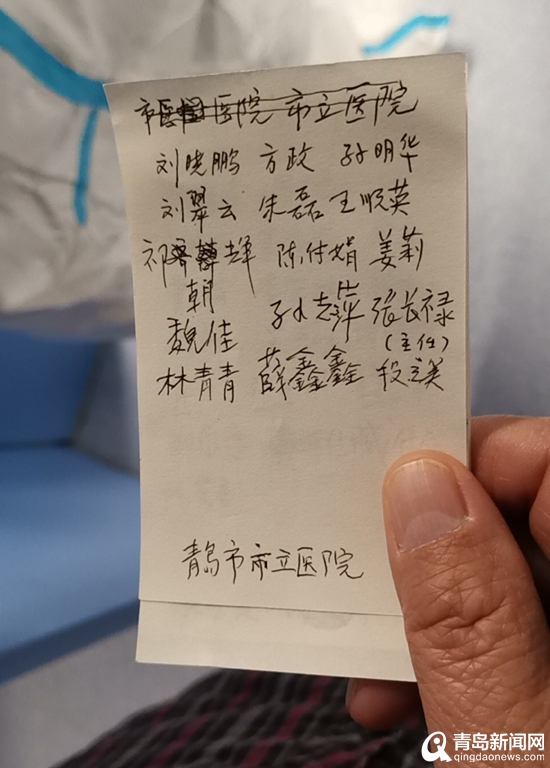 市立医院
刘晓鹏 方政 孙明华
刘翠云 朱磊 王顺英
祁 辉 陈付娟 姜莉
朝
魏佳 孙志萍 张长禄
(主任)
林青青 薛鑫鑫 段美
青岛市市立医院
青岛新闻网
qingdaonews.com